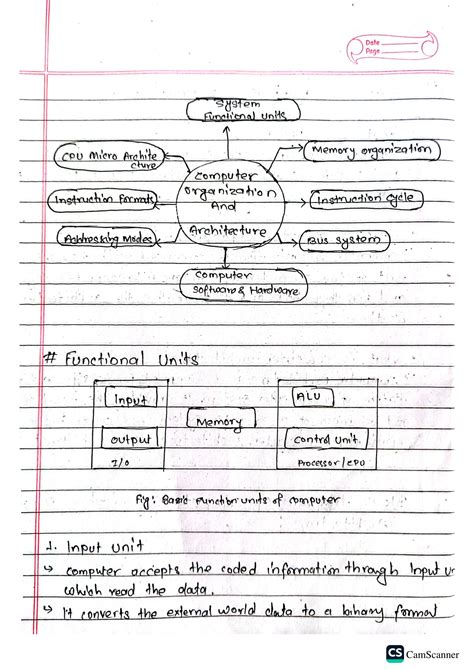 Date
Page
System
Functional units
CPU Micro Archite
cture
Memory organization
Computer
Organization
And
Architecture
Instruction Formats
Instruction Cycle
Addressing Modes
Bus System
Computer
Software & Hardware
# Functional Units
Input
ALU
Memory
output
Control Unit.
I/O
Processor/CPU
Fig: Basic Function units of computer
1. Input unit
↳ computer accepts the coded information through Input un
which read the data.
↳ It converts the external world data to a binary format
CS CamScanner